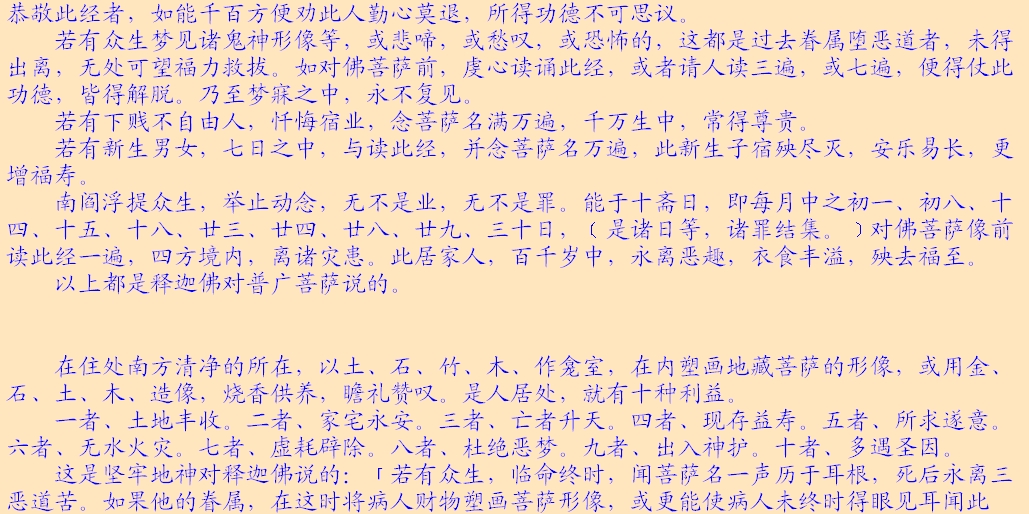 恭敬此经者，如能千百方便劝此人勤心莫退，所得功德不可思议。
若有众生梦见诸鬼神形像等，或悲啼，或愁叹，或恐怖的，这都是过去眷属堕恶道者，未得
出离，无处可望福力救拔。如对佛菩萨前，虔心读诵此经，或者请人读三遍，或七遍，便得仗此
功德，皆得解脱。乃至梦寐之中，永不复见。
若有下贱不自由人，忏悔宿业，念菩萨名满万遍，千万生中，常得尊贵。
若有新生男女，七日之中，与读此经，并念菩萨名万遍，此新生子宿殃尽灭，安乐易长，更
增福寿。
南阎浮提众生，举止动念，无不是业，无不是罪。能于十斋日，即每月中之初一、初八、十
四、十五、十八、廿三、廿四、廿八、廿九、三十日，﹝是诸日等，诸罪结集。﹞对佛菩萨像前
读此经一遍，四方境内，离诸灾患。此居家人，百千岁中，永离恶趣，衣食丰溢，殃去福至。
以上都是释迦佛对普广菩萨说的。
在住处南方清净的所在，以土、石、竹、木、作龛室，在内塑画地藏菩萨的形像，或用金、
石、土、木、造像，烧香供养，瞻礼赞叹。是人居处，就有十种利益。
一者、土地丰收。二者、家宅永安。三者、亡者升天。四者、现存益寿。五者、所求遂意。
六者、无水火灾。七者、虚耗辟除。八者、杜绝恶梦。九者、出入神护。十者、多遇圣因。
这是坚牢地神对释迦佛说的：「若有众生，临命终时，闻菩萨名一声历于耳根，死后永离三
恶道苦。如果他的眷属，在这时将病人财物塑画菩萨形像，或更能使病人未终时得眼见耳闻此